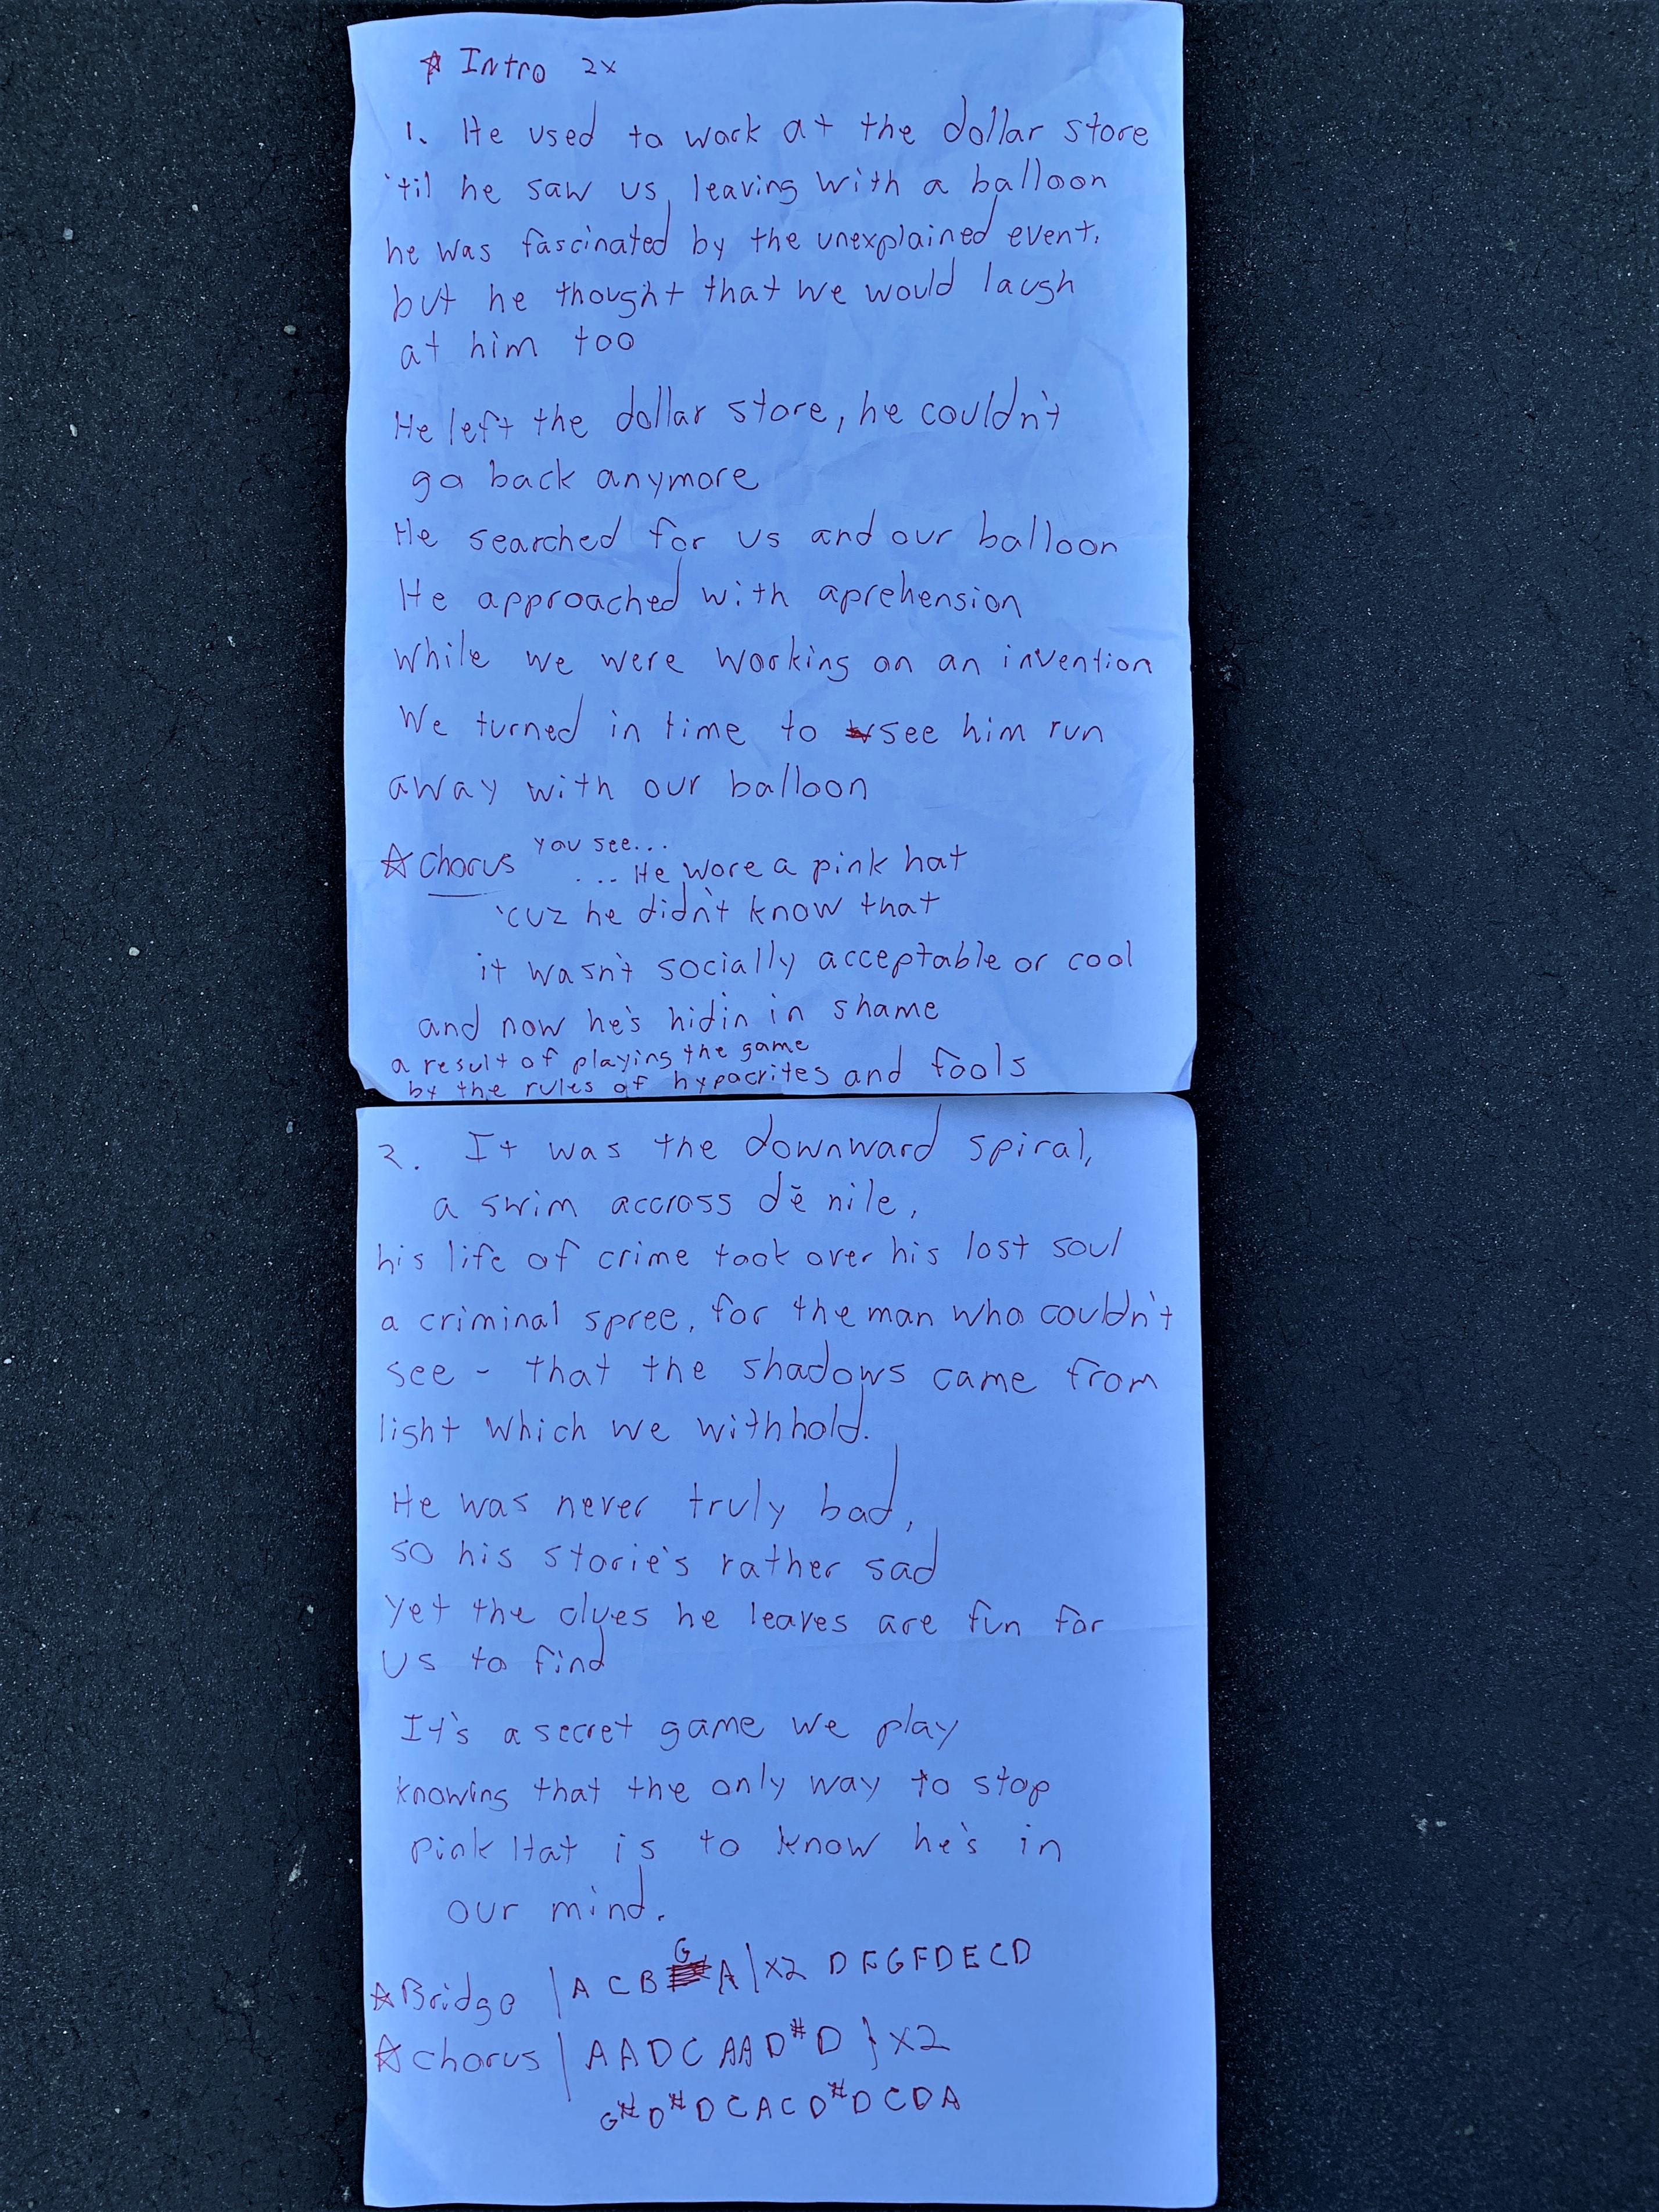 ☆ Intro 2x
1. He used to work at the dollar store
'til he saw us leaving with a balloon
he was fascinated by the unexplained event,
but he thought that we would laugh
at him too
He left the dollar store, he couldn't
go back anymore
He searched for us and our balloon
He approached with aprehension
while we were working on an invention
We turned in time to see him run
away with our balloon
☆ Chorus you see...
... He wore a pink hat
'cuz he didn't know that
it wasn't socially acceptable or cool
and now he's hidin in shame
a result of playing the game
by the rules of hypocrites and fools
2. It was the downward spiral,
a swim accross dē nile,
his life of crime took over his lost soul
a criminal spree, for the man who couldn't
see - that the shadows came from
light which we withhold.
He was never truly bad,
so his storie's rather sad
yet the clues he leaves are fun for
us to find
It's a secret game we play
knowing that the only way to stop
pink Hat is to know he's in
our mind.
☆ Bridge | A C B G A | x2 D F G F D E C D
☆ Chorus | A A D C A A D# D } x2
G# D# D C A C D# D C D A